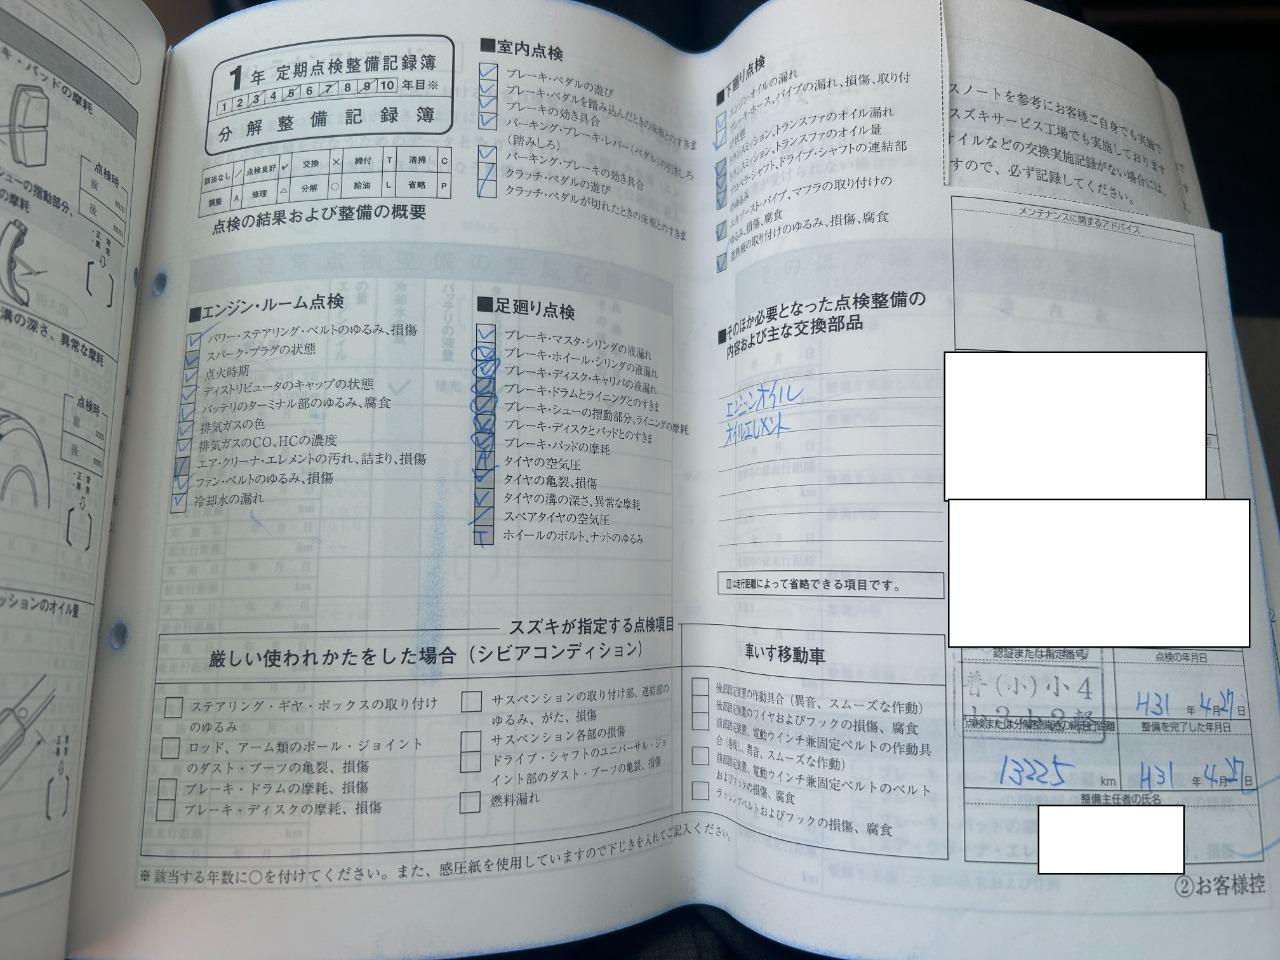 キ・バンドの摩耗
点検時
前 mm
後 mm
シューの摺動部分、
の摩耗
溝の深さ、異常な摩耗
点検時
前 mm
後 mm
ッションのオイル量
1年 定期点検整備記録簿
1 2 3 4 5 6 7 8 9 10 年目※
分解整備記録簿
該当なし / 点検良好 ✓ 交換 × 締付 T 清掃 C
調整 A 修理 △ 分解 ○ 給油 L 省略 P
点検の結果および整備の概要
■室内点検
ブレーキ・ペダルの遊び
ブレーキ・ペダルを踏み込んだときの床板とのすきま
ブレーキの効き具合
パーキング・ブレーキ・レバー(ペダル)の引きしろ
(踏みしろ)
パーキング・ブレーキの効き具合
クラッチ・ペダルの遊び
クラッチ・ペダルが切れたときの床板とのすきま
■エンジン・ルーム点検
パワー・ステアリング・ベルトのゆるみ、損傷
スパーク・プラグの状態
点火時期
ディストリビュータのキャップの状態
バッテリのターミナル部のゆるみ、腐食
排気ガスの色
排気ガスのCO、HCの濃度
エア・クリーナ・エレメントの汚れ、詰まり、損傷
ファン・ベルトのゆるみ、損傷
冷却水の漏れ
■足廻り点検
ブレーキ・マスタ・シリンダの液漏れ
ブレーキ・ホイール・シリンダの液漏れ
ブレーキ・ディスク・キャリパの液漏れ
ブレーキ・ドラムとライニングとのすきま
ブレーキ・シューの摺動部分、ライニングの摩耗
ブレーキ・ディスクとパッドとのすきま
ブレーキ・パッドの摩耗
タイヤの空気圧
タイヤの亀裂、損傷
タイヤの溝の深さ、異常な摩耗
スペアタイヤの空気圧
ホイールのボルト、ナットのゆるみ
■下廻り点検
エンジン・オイルの漏れ
ブレーキ・ホース、パイプの漏れ、損傷、取り付
け状態
トランスミッション、トランスファのオイル漏れ
トランスミッション、トランスファのオイル量
プロペラ・シャフト、ドライブ・シャフトの連結部
のゆるみ
エキゾースト・パイプ、マフラの取り付けの
ゆるみ、損傷、腐食
遮熱板の取り付けのゆるみ、損傷、腐食
■そのほか必要となった点検整備の
内容および主な交換部品
エンジンオイル
オイルエレメント
は走行距離によって省略できる項目です。
スズキが指定する点検項目
厳しい使われかたをした場合(シビアコンディション)
ステアリング・ギヤ・ボックスの取り付け
のゆるみ
ロッド、アーム類のボール・ジョイント
のダスト・ブーツの亀裂、損傷
ブレーキ・ドラムの摩耗、損傷
ブレーキ・ディスクの摩耗、損傷
サスペンションの取り付け部、連結部の
ゆるみ、がた、損傷
サスペンション各部の損傷
ドライブ・シャフトのユニバーサル・ジョ
イント部のダスト・ブーツの亀裂、損傷
燃料漏れ
車いす移動車
後部固定装置の作動具合(異音、スムーズな作動)
後部固定装置のワイヤおよびフックの損傷、腐食
前部固定装置、電動ウインチ兼固定ベルトの作動具
合(巻戻し、異音、スムーズな作動)
前部固定装置、電動ウインチ兼固定ベルトのベルト
およびフックの損傷、腐食
ラッシングベルトおよびフックの損傷、腐食
※該当する年数に○を付けてください。また、感圧紙を使用していますので下じきを入れてご記入ください。
スノートを参考にお客様ご自身でも実施で
スズキサービス工場でも実施しております
オイルなどの交換実施記録がない場合には、
すので、必ず記録してください。
メンテナンスに関するアドバイス
認証または指定番号
点検の年月日
H31 年 4月27日
整備を完了した年月日
13225 km
H31 年 4月27日
整備主任者の氏名
②お客様控